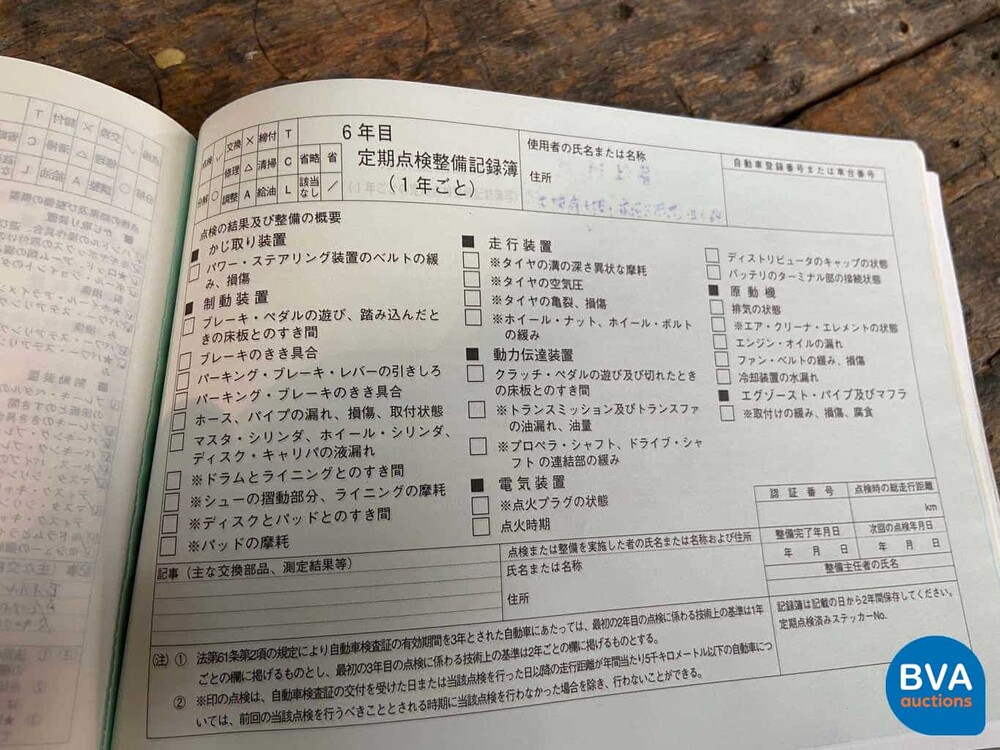 点検 ✓ 交換 × 締付 T
修理 △ 清掃 C 省略 省
分解 ○ 調整 A 給油 L 該当なし ／
6年目
定期点検整備記録簿
(1年ごと)
使用者の氏名または名称
住所
自動車登録番号または車台番号
点検の結果及び整備の概要
■ かじ取り装置
パワー・ステアリング装置のベルトの緩
み、損傷
■ 制動装置
ブレーキ・ペダルの遊び、踏み込んだと
きの床板とのすき間
ブレーキのきき具合
パーキング・ブレーキ・レバーの引きしろ
パーキング・ブレーキのきき具合
ホース、パイプの漏れ、損傷、取付状態
マスタ・シリンダ、ホイール・シリンダ、
ディスク・キャリパの液漏れ
※ドラムとライニングとのすき間
※シューの摺動部分、ライニングの摩耗
※ディスクとパッドとのすき間
※パッドの摩耗
■ 走行装置
※タイヤの溝の深さ異状な摩耗
※タイヤの空気圧
※タイヤの亀裂、損傷
※ホイール・ナット、ホイール・ボルト
の緩み
■ 動力伝達装置
クラッチ・ペダルの遊び及び切れたとき
の床板とのすき間
※トランスミッション及びトランスファ
の油漏れ、油量
※プロペラ・シャフト、ドライブ・シャ
フトの連結部の緩み
■ 電気装置
※点火プラグの状態
点火時期
ディストリビュータのキャップの状態
バッテリのターミナル部の接続状態
■ 原動機
排気の状態
※エア・クリーナ・エレメントの状態
エンジン・オイルの漏れ
ファン・ベルトの緩み、損傷
冷却装置の水漏れ
■ エグゾースト・パイプ及びマフラ
※取付けの緩み、損傷、腐食
記事(主な交換部品、測定結果等)
点検または整備を実施した者の氏名または名称および住所
氏名または名称
住所
認証番号 点検時の総走行距離
km
整備完了年月日 次回の点検年月日
年 月 日 年 月 日
整備主任者の氏名
記録簿は記載の日から2年間保存してください。
定期点検済みステッカーNo.
(注) ① 法第61条第2項の規定により自動車検査証の有効期間を3年とされた自動車にあたっては、最初の2年目の点検に係わる技術上の基準は1年
ごとの欄に掲げるものとし、最初の3年目の点検に係わる技術上の基準は2年ごとの欄に掲げるものとする。
② ※印の点検は、自動車検査証の交付を受けた日または当該点検を行った日以降の走行距離が年間当たり5千キロメートル以下の自動車につ
いては、前回の当該点検を行うべきこととされる時期に当該点検を行わなかった場合を除き、行わないことができる。
BVA
auctions